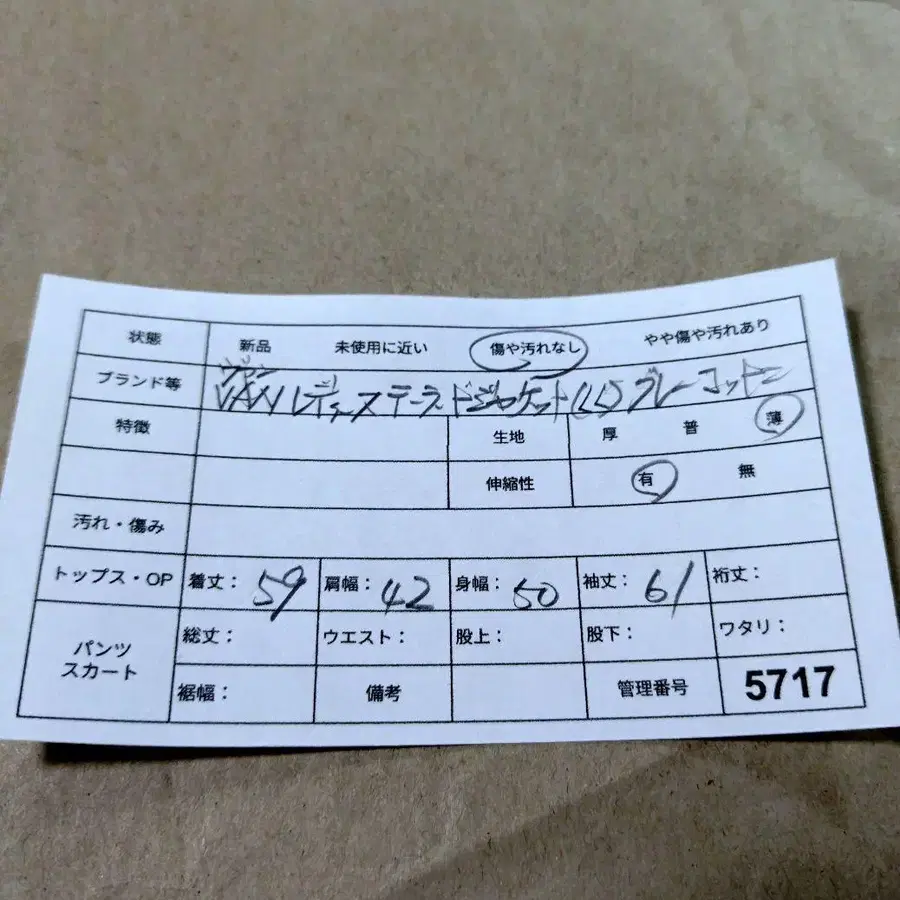 状態 新品 未使用に近い 傷や汚れなし やや傷や汚れあり
ブランド等 VAN レディス テーラードジャケット(LL) グレー コットン
特徴 生地 厚 普 薄
伸縮性 有 無
汚れ・傷み
トップス・OP 着丈: 59 肩幅: 42 身幅: 50 袖丈: 61 裄丈:
パンツ スカート 総丈: ウエスト: 股上: 股下: ワタリ:
裾幅: 備考 管理番号 5717